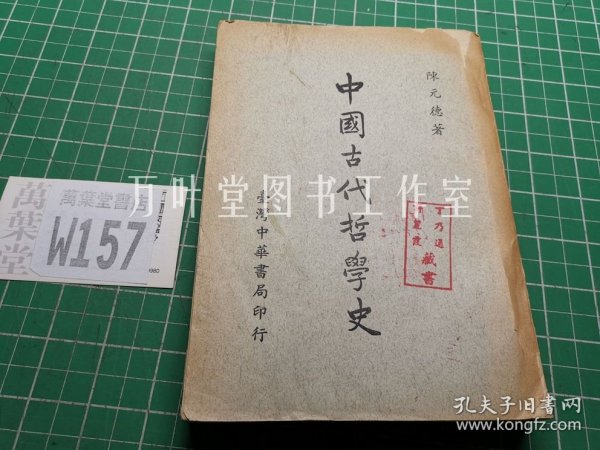 陳元德著
中國古代哲學史
臺灣中華書局印行
丁乃通
許麗霞
藏書
萬葉堂
萬葉堂書店
W157
万叶堂图书工作室
孔夫子旧书网
www.kongfz.com